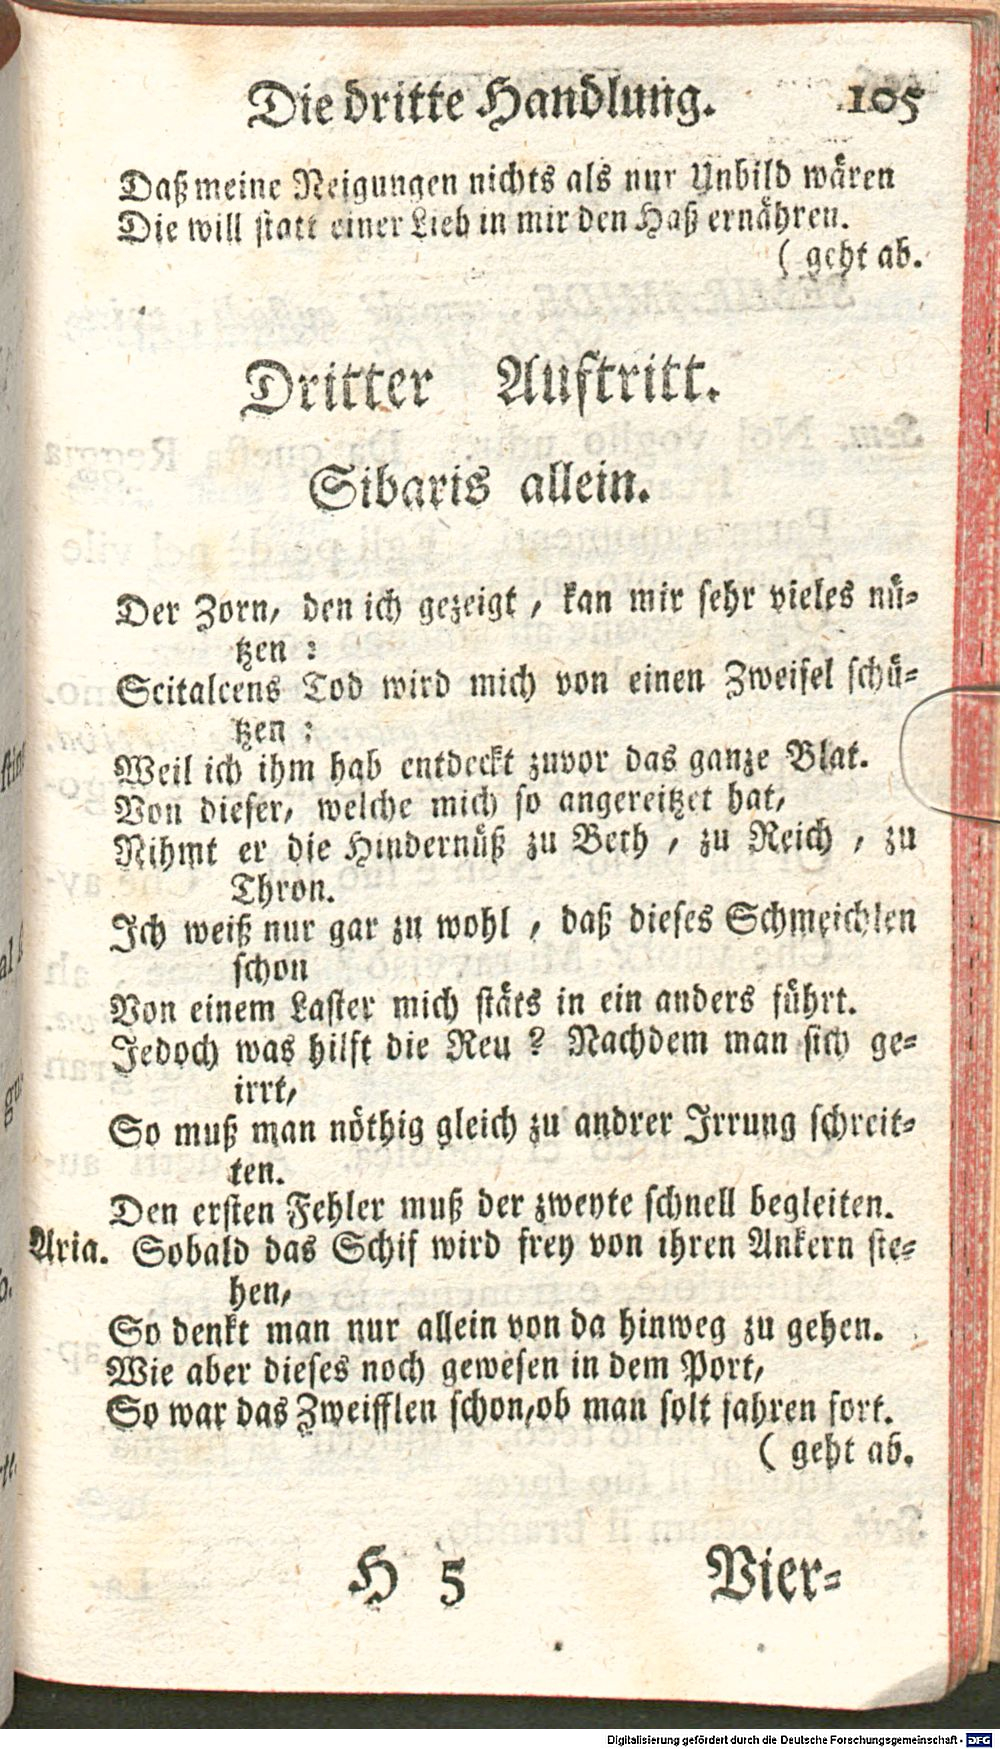 Die dritte Handlung. 105
Daß meine Neigungen nichts als nur Unbild wären
Die will statt einer Lieb in mir den Haß ernähren.
( geht ab.
Dritter Auftritt.
Sibaris allein.
Der Zorn, den ich gezeigt, kan mir sehr vieles nü-
tzen :
Scitalcens Tod wird mich von einen Zweifel schü-
tzen :
Weil ich ihm hab entdeckt zuvor das ganze Blat.
Von dieser, welche mich so angereitzet hat,
Nihmt er die Hindernüß zu Beth, zu Reich, zu
Thron.
Ich weiß nur gar zu wohl, daß dieses Schmeichlen
schon
Von einem Laster mich stäts in ein anders führt.
Jedoch was hilft die Reu ? Nachdem man sich ge-
irrt,
So muß man nöthig gleich zu andrer Irrung schreit-
ten.
Den ersten Fehler muß der zweyte schnell begleiten.
Aria. Sobald das Schif wird frey von ihren Ankern ste-
hen,
So denkt man nur allein von da hinweg zu gehen.
Wie aber dieses noch gewesen in dem Port,
So war das Zweifflen schon, ob man solt fahren fort.
( geht ab.
H 5 Vier-
Digitalisierung gefördert durch die Deutsche Forschungsgemeinschaft - DFG